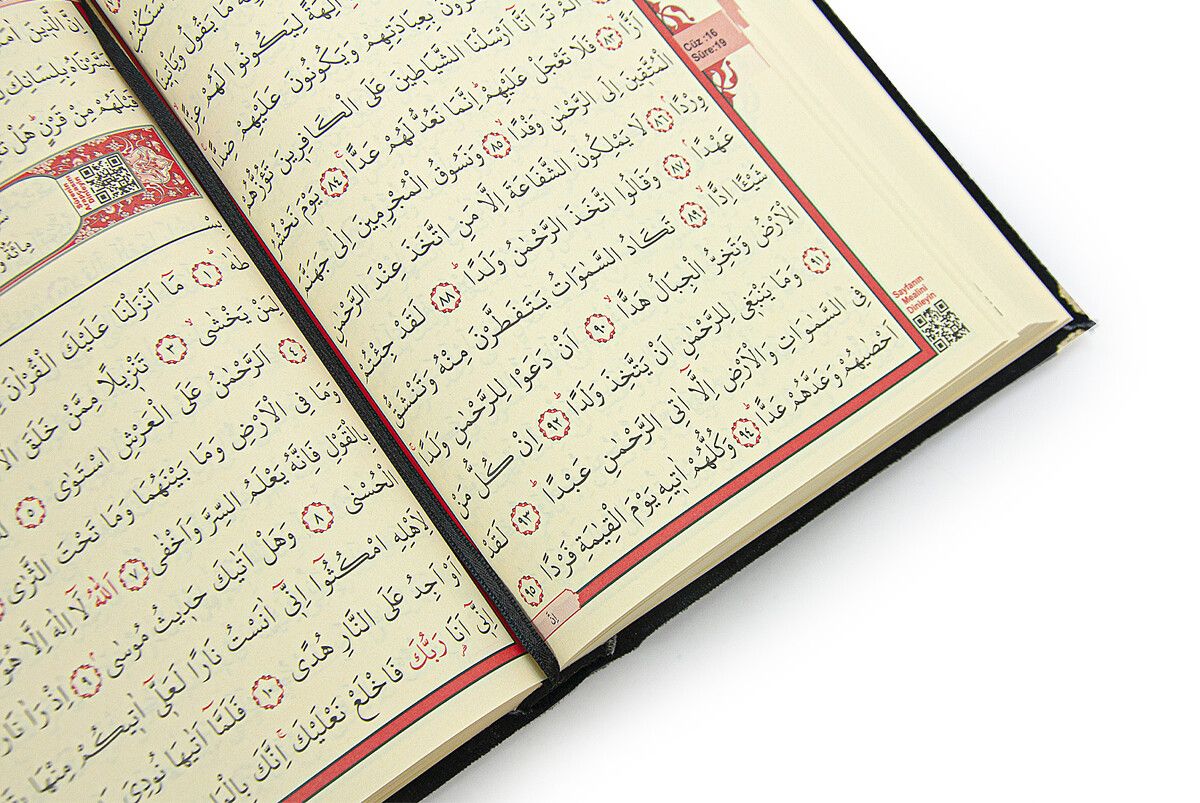 لِيَكُونُوا لَهُمْ عِزًّا
بِعِبَادَتِهِمْ وَيَكُونُونَ عَلَيْهِمْ ضِدًّا
تَرَ اَنَّٓا اَرْسَلْنَا الشَّيَاطٖينَ عَلَى الْكَافِرٖينَ تَؤُزُّهُمْ
اَزًّا ٨٣ فَلَا تَعْجَلْ عَلَيْهِمْ اِنَّمَا نَعُدُّ لَهُمْ عَدًّا ٨٤ يَوْمَ نَحْشُرُ
الْمُتَّقٖينَ اِلَى الرَّحْمٰنِ وَفْدًا ٨٥ وَنَسُوقُ الْمُجْرِمٖينَ اِلٰى جَهَنَّمَ
وِرْدًا ٨٦ لَا يَمْلِكُونَ الشَّفَاعَةَ اِلَّا مَنِ اتَّخَذَ عِنْدَ الرَّحْمٰنِ
عَهْدًا ٨٧ وَقَالُوا اتَّخَذَ الرَّحْمٰنُ وَلَدًا ٨٨ لَقَدْ جِئْتُمْ
شَيْـًٔا اِدًّا ٨٩ تَكَادُ السَّمٰوَاتُ يَتَفَطَّرْنَ مِنْهُ وَتَنْشَقُّ
الْاَرْضُ وَتَخِرُّ الْجِبَالُ هَدًّا ٩٠ اَنْ دَعَوْا لِلرَّحْمٰنِ وَلَدًا
٩١ وَمَا يَنْبَغٖي لِلرَّحْمٰنِ اَنْ يَتَّخِذَ وَلَدًا ٩٢ اِنْ كُلُّ مَنْ
فِي السَّمٰوَاتِ وَالْاَرْضِ اِلَّٓا اٰتِي الرَّحْمٰنِ عَبْدًا ٩٣ لَقَدْ
اَحْصٰيهُمْ وَعَدَّهُمْ عَدًّا ٩٤ وَكُلُّهُمْ اٰتٖيهِ يَوْمَ الْقِيٰمَةِ فَرْدًا ٩٥
اِنَّ
Cüz :16
Sûre:19
Sayfanın
Mealini
Dinleyin
اِنَّ الَّذٖينَ
بِلِسَانِكَ
قَبْلَهُمْ مِنْ قَرْنٍ هَلْ
طٰهٰ ١ مَٓا اَنْزَلْنَا عَلَيْكَ الْقُرْاٰنَ
لِمَنْ يَخْشٰى ٣ تَنْزٖيلًا مِمَّنْ خَلَقَ
٤ اَلرَّحْمٰنُ عَلَى الْعَرْشِ اسْتَوٰى ٥
وَمَا فِي الْاَرْضِ وَمَا بَيْنَهُمَا وَمَا تَحْتَ الثَّرٰى
بِالْقَوْلِ فَاِنَّهُ يَعْلَمُ السِّرَّ وَاَخْفٰى ٧ اَللّٰهُ لَٓا اِلٰهَ اِلَّا هُوَ
الْحُسْنٰى ٨ وَهَلْ اَتٰيكَ حَدٖيثُ مُوسٰى ٩ اِذْ رَاٰ
لِاَهْلِهِ امْكُثُٓوا اِنّٖٓي اٰنَسْتُ نَارًا لَعَلّٖٓي اٰتٖيكُمْ مِنْهَا
اَوْ اَجِدُ عَلَى النَّارِ هُدًى ١٠ فَلَمَّٓا اَتٰيهَا نُودِيَ
اِنّٖٓي اَنَا رَبُّكَ فَاخْلَعْ نَعْلَيْكَ اِنَّكَ